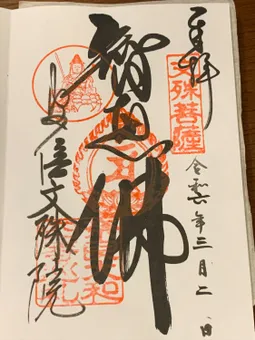 奉拝
文殊菩薩
令和六年三月二日
智恵佛
安倍文殊院